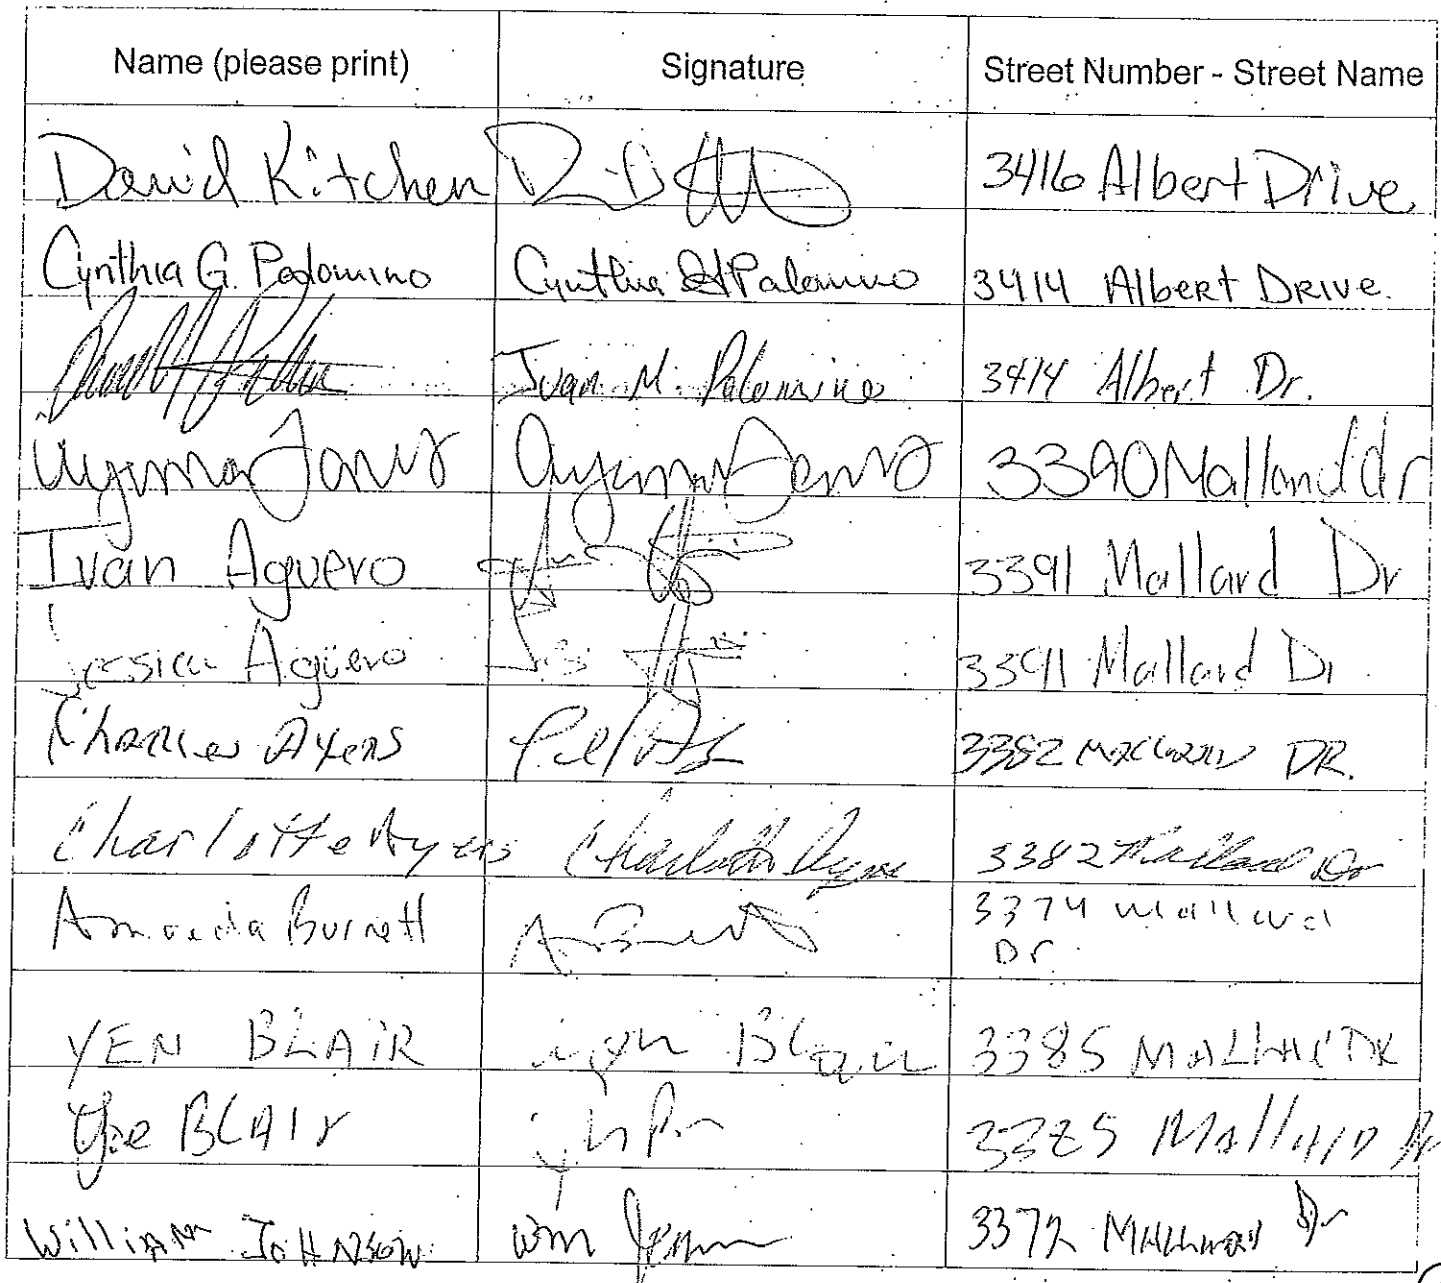 Name (please print) Signature Street Number - Street Name
David Kitchen 3416 Albert Drive
Cynthia G. Palomino Cynthia G Palomino 3414 Albert DRIVE.
Ivan M. Palomino 3414 Albert Dr.
3390 Mallard dr
Ivan Aguero 3391 Mallard Dr
Jessica Agüero 3391 Mallard Dr
Charles Ayers 3382 Mallard DR.
Charlotte Ayers Charlotte Ayers 3382 Mallard Dr
Amanda Burnett 3374 Mallard
Dr.
YEN BLAIR yen Blair 3385 MALLARD DR
BLAIr 3385 Mallard Dr
William JOHNSON Wm 3372 Mallard Dr